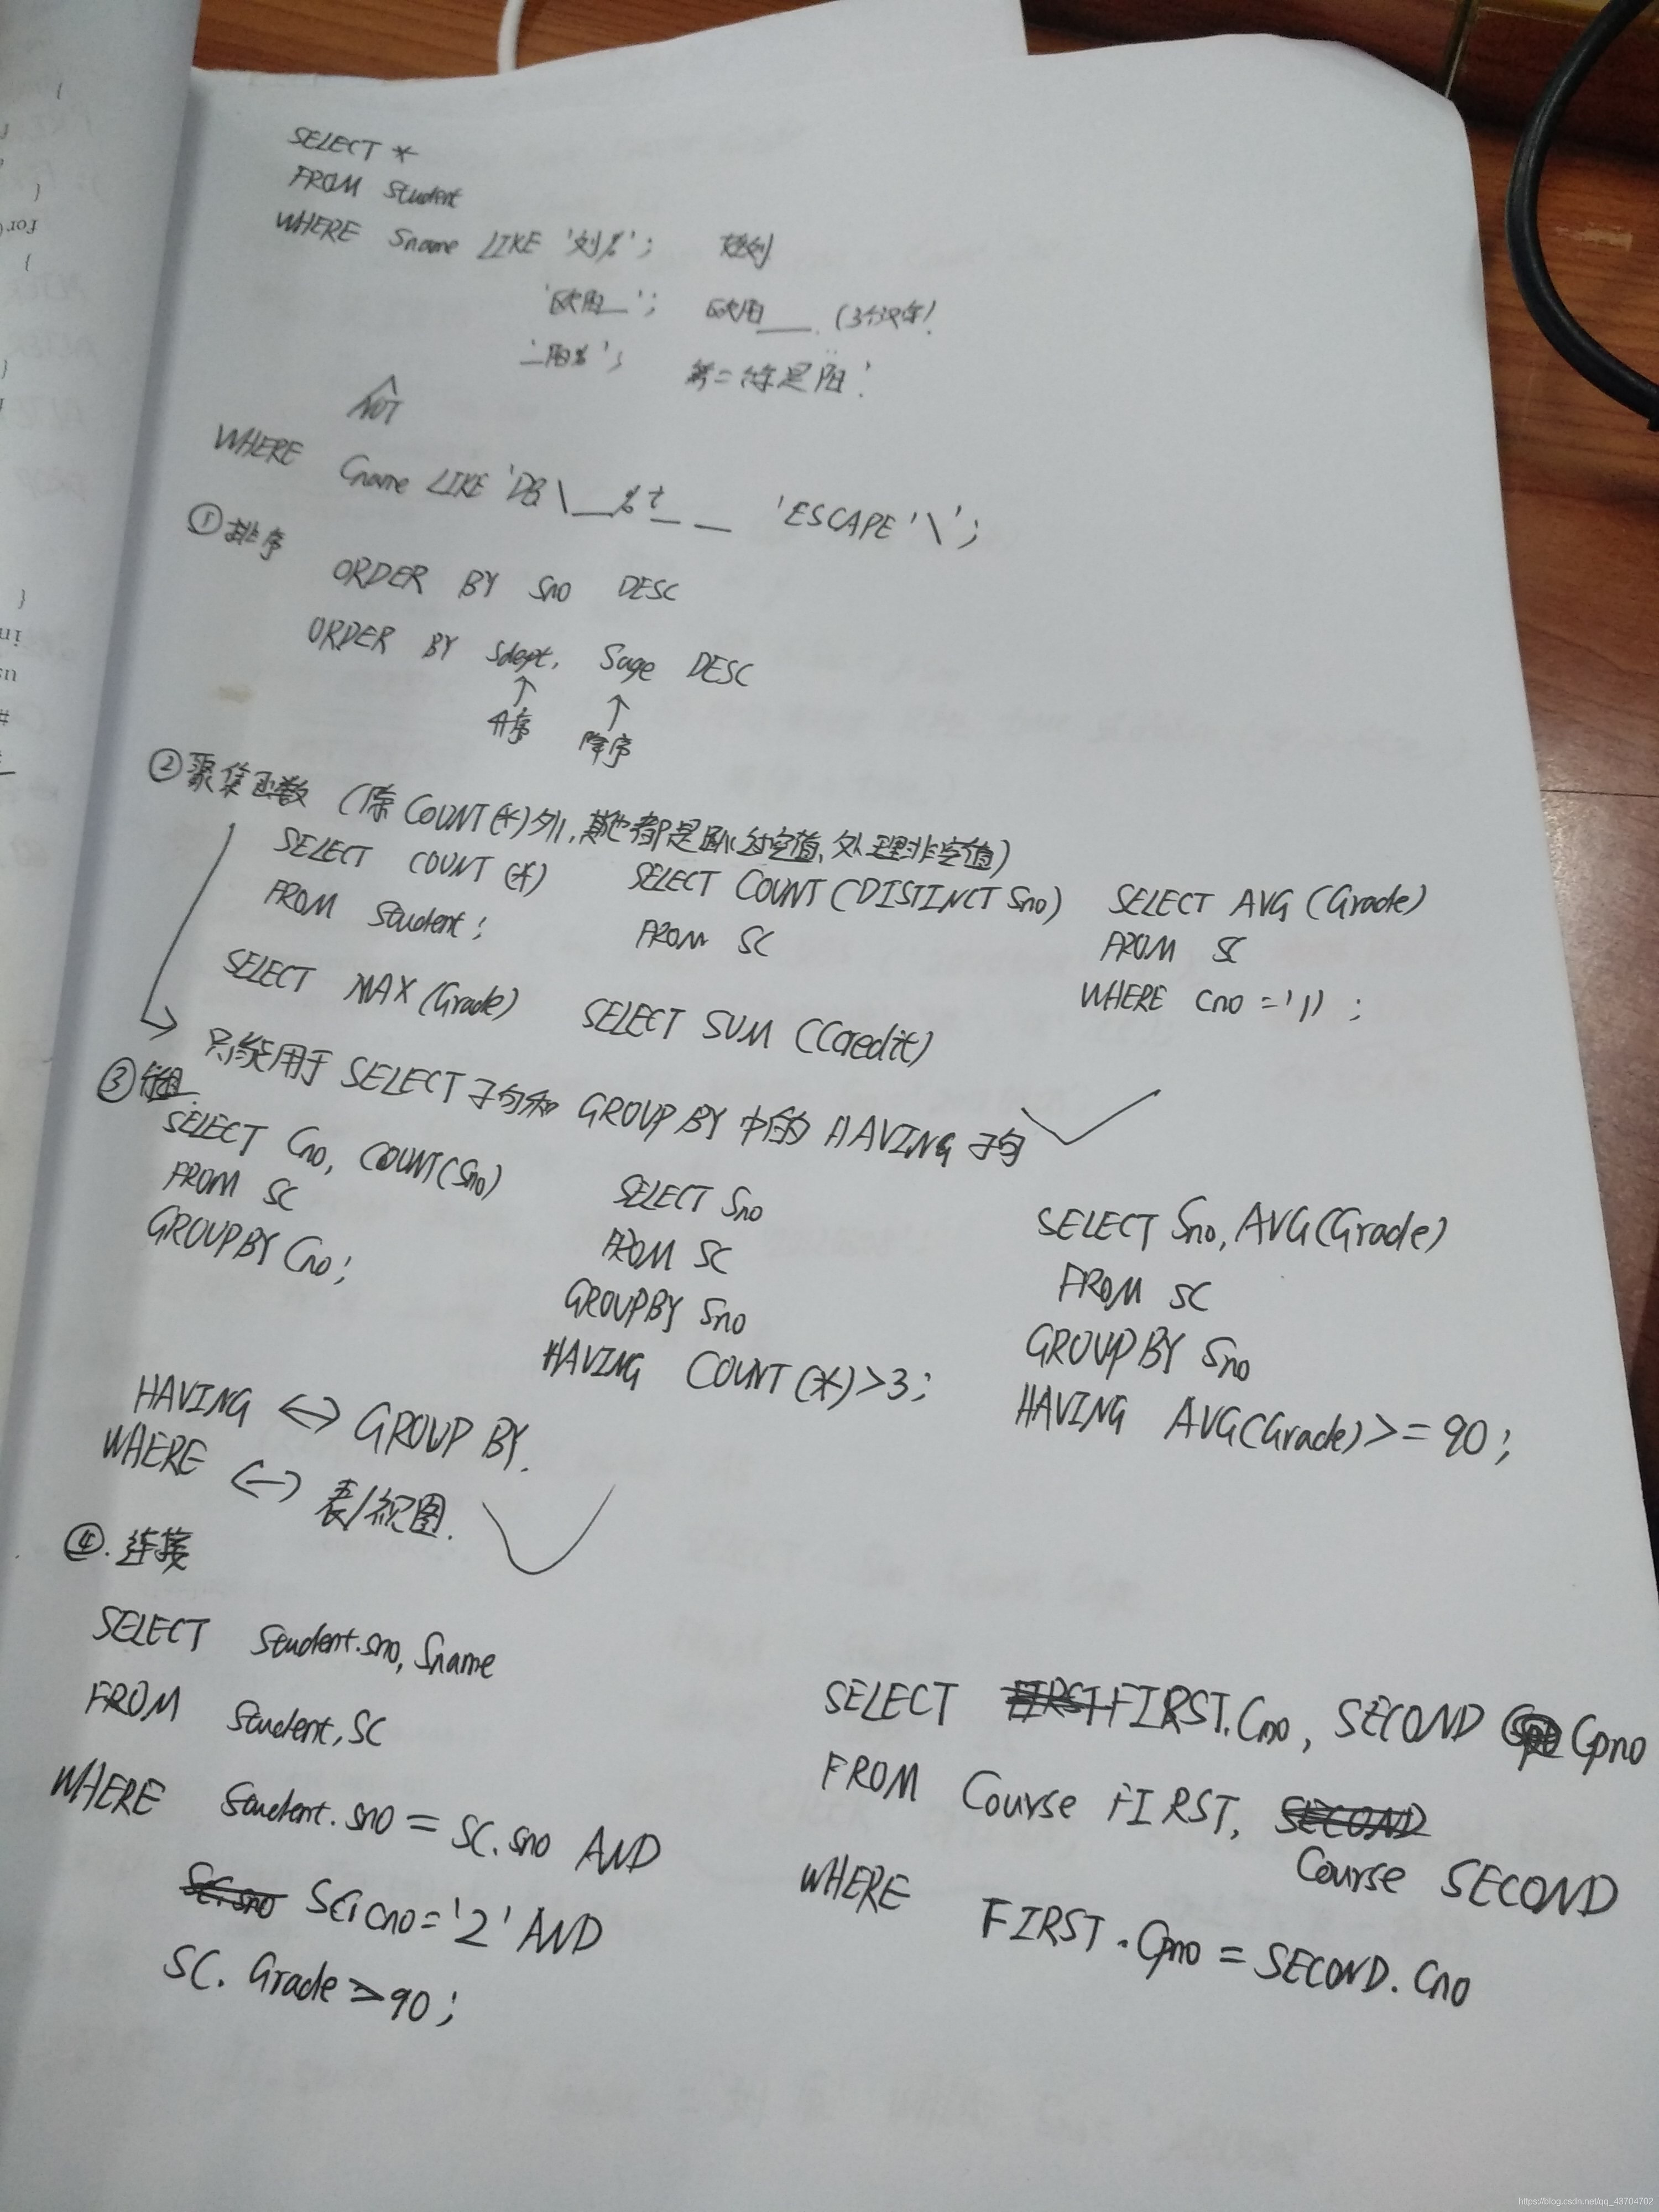 SELECT *
FROM Student
WHERE Sname LIKE '刘%'; 姓刘
'欧阳__'; 欧阳___ (3个汉字)
'_阳%'; 第二个字是阳.
NOT
WHERE Cname LIKE 'DB\__%t_ _ 'ESCAPE'\';
①排序
ORDER BY Sno DESC
ORDER BY Sdept, Sage DESC
↑ ↑
升序 降序
②聚集函数 (除COUNT(*)外,其他都是跳过空值,处理非空值)
SELECT COUNT(*) SELECT COUNT(DISTINCT Sno) SELECT AVG(Grade)
FROM Student; FROM SC FROM SC
WHERE Cno='1';
SELECT MAX(Grade) SELECT SUM(Ccredit)
只能用于SELECT子句和GROUP BY中的HAVING子句
③
SELECT Cno, COUNT(Sno)
FROM SC
GROUP BY Cno;
SELECT Sno
FROM SC
GROUP BY Sno
HAVING COUNT(*)>3;
SELECT Sno, AVG(Grade)
FROM SC
GROUP BY Sno
HAVING AVG(Grade)>=90;
HAVING ↔ GROUP BY.
WHERE ↔ 表/视图.
④.连接
SELECT Student.sno, Sname
FROM Student, SC
WHERE Student.sno = SC.sno AND
SC.cno='2' AND
SC.Grade>90;
SELECT FIRST.Cno, SECOND Cpno
FROM Course FIRST,
Course SECOND
WHERE FIRST.Cpno = SECOND.Cno
https://blog.csdn.net/qq_43704702